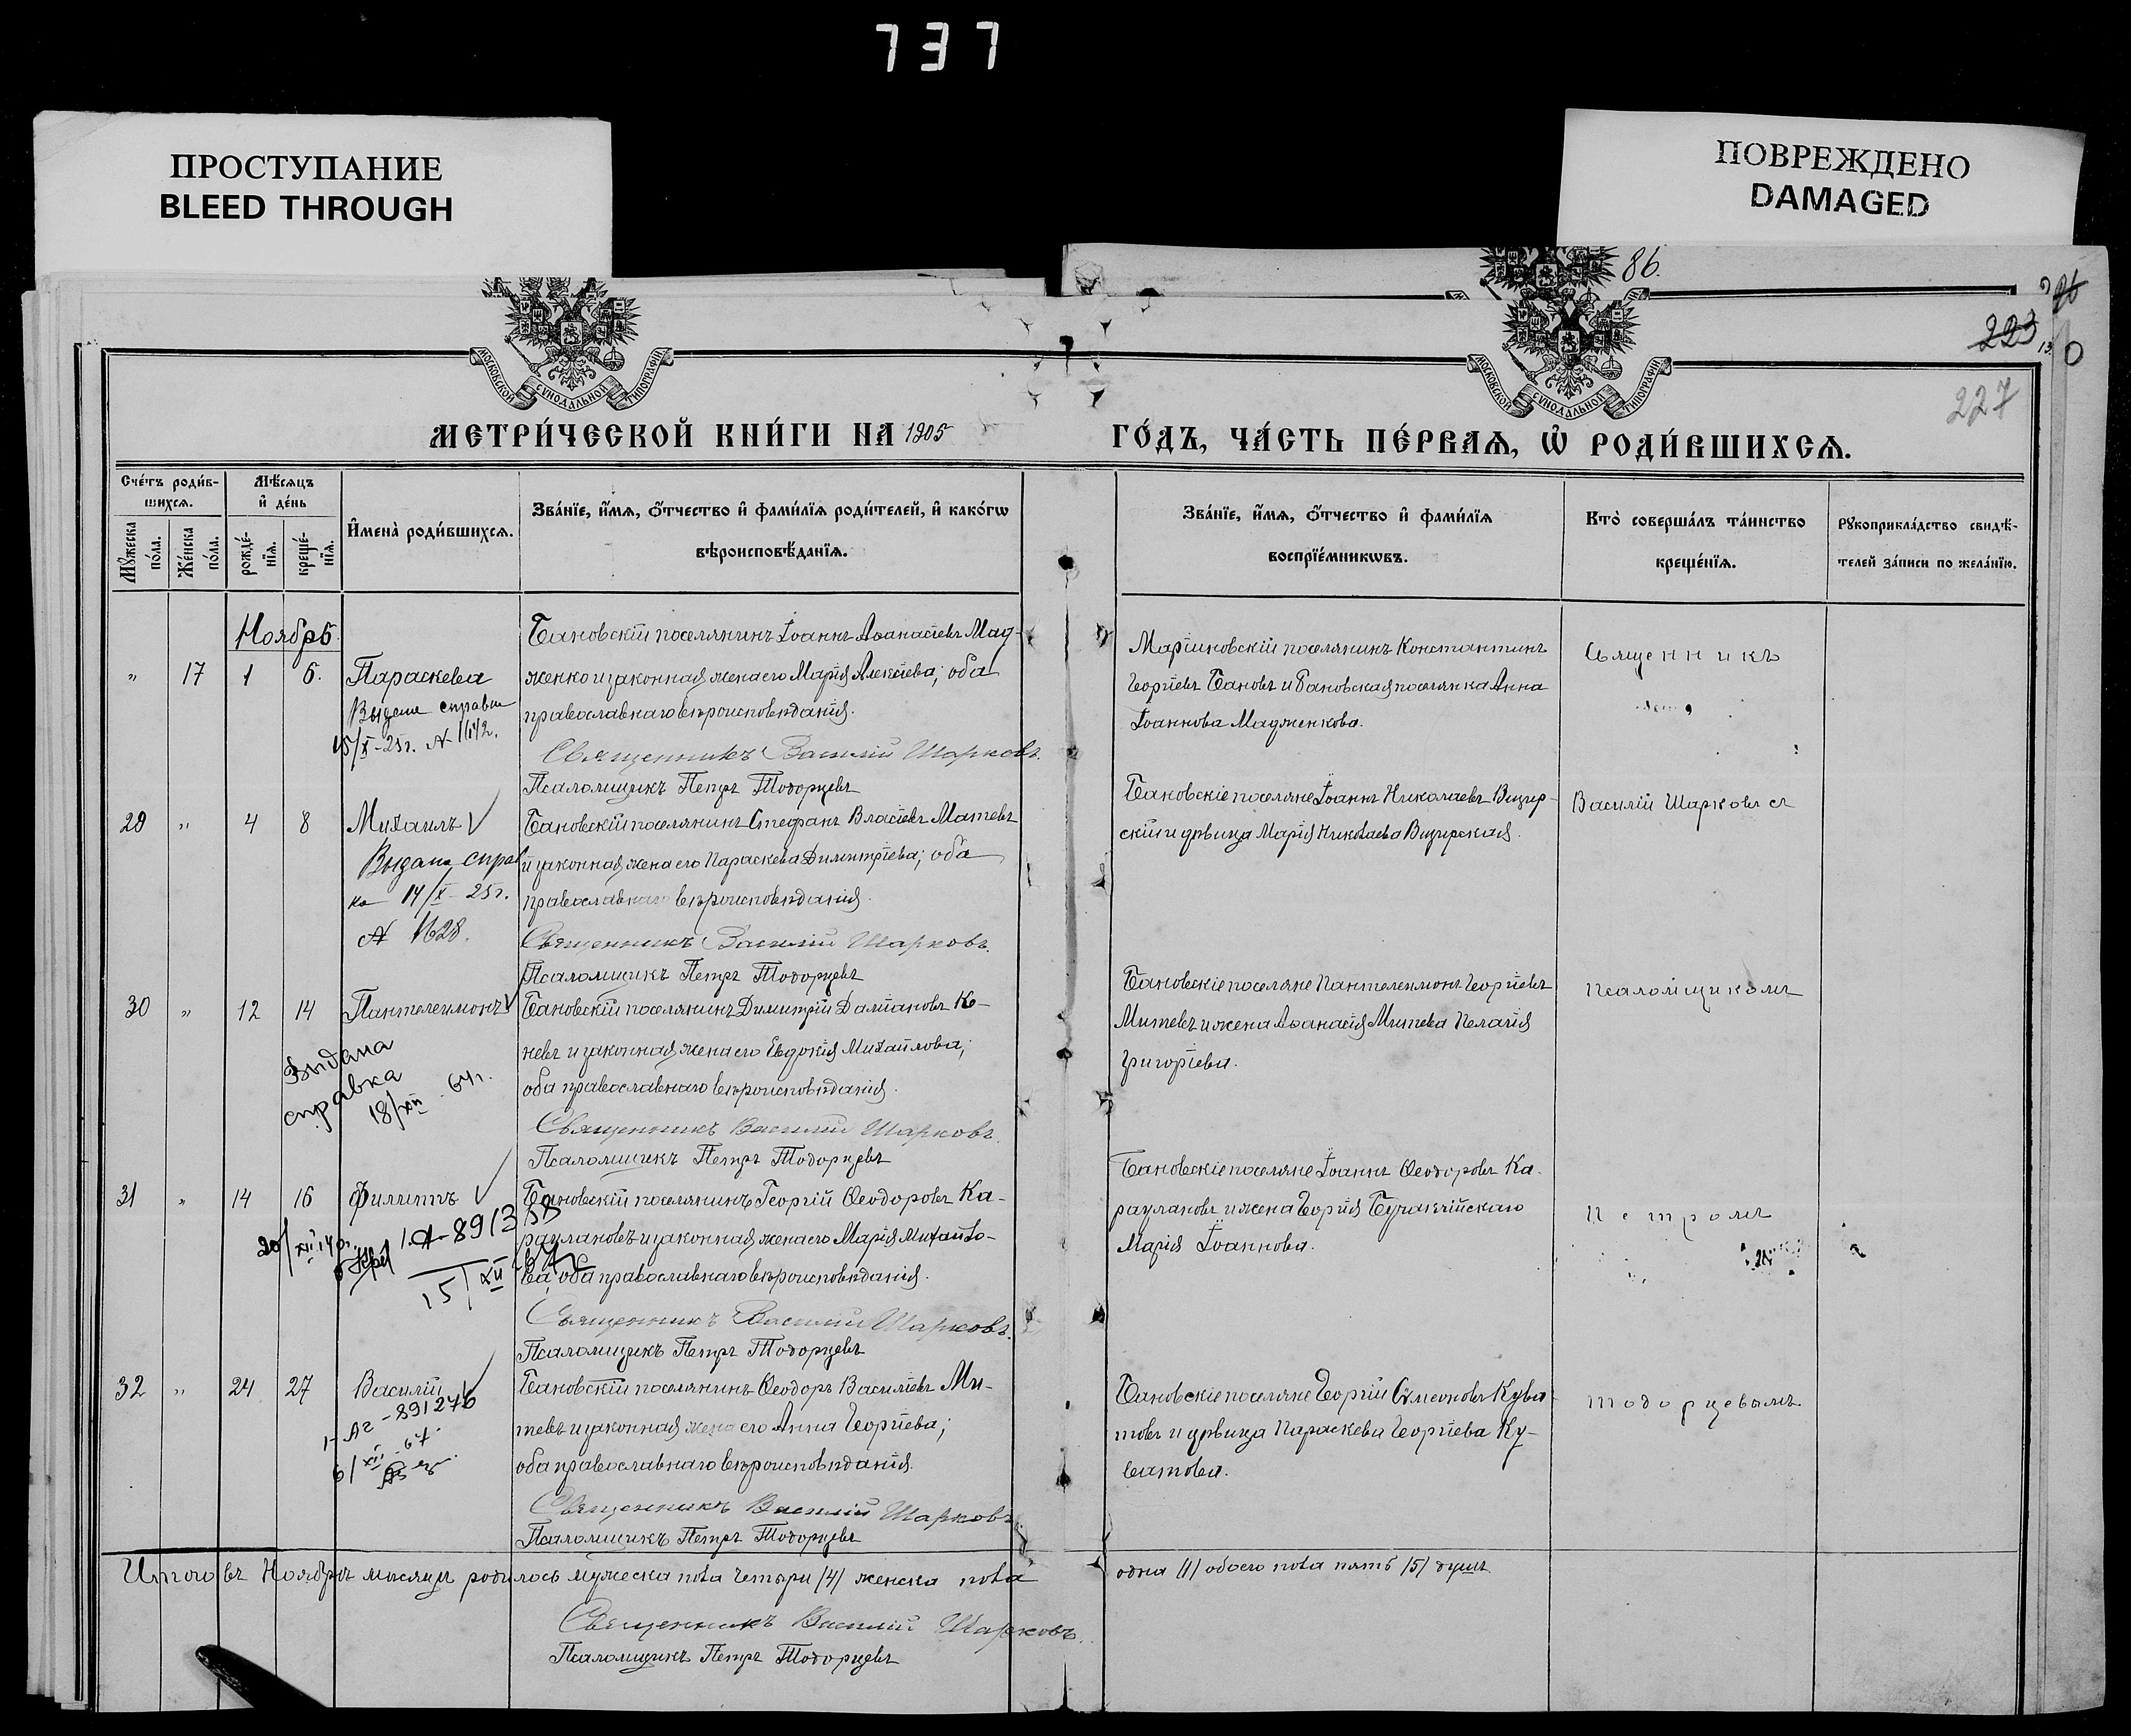 737
ПРОСТУПАНИЕ
BLEED THROUGH
ПОВРЕЖДЕНО
DAMAGED
86.
223
227
МОСКОВСКОЙ СУНОДАЛЬНОЙ ТИПОГРАФІИ
МОСКОВСКОЙ СУНОДАЛЬНОЙ ТИПОГРАФІИ
МЕТРИ́ЧЕСКОЙ КНИ́ГИ НА 1905
ГО́ДЪ, ЧА́СТЬ ПЕ́РВАѦ, Ѡ҆ РОДИ́ВШИХСѦ.
Сче́тъ роди́в-
шихсѧ.
Мѣ́сѧцъ
и҆ де́нь
Мꙋ́жеска по́ла.
Же́нска по́ла.
рожде́-нїѧ.
креще́-нїѧ.
И҆мена̀ роди́вшихсѧ.
Зва́нїе, и҆́мѧ, ѻ҆́тчество и҆ фами́лїѧ роди́телей, и҆ како́гѡ
вѣроисповѣ́данїѧ.
Зва́нїе, и҆́мѧ, ѻ҆́тчество и҆ фами́лїѧ
воспрїе́мникѡвъ.
Кто̀ соверша́лъ та́инство
креще́нїѧ.
Рꙋкоприкла́дство свидѣ́-
телей за́писи по жела́нїю.
Ноябрь
" 17 1 6. Параскева
Выдана справка
15/X-25г. № 1642.
Бановскій поселянинъ Іоаннъ Аѳанасіевъ Мад-
женко и законная жена его Марія Алексіева; оба
православнаго вѣроисповѣданія.
Священникъ Василій Шарковъ.
Псаломщикъ Петръ Тодорцевъ
Маріиновскій поселянинъ Константинъ
Георгіевъ Бановъ и Бановская поселянка Анна
Іоаннова Мадженкова.
Священникъ
29 " 4 8 Михаилъ
Выдана справ
ка 14/X-25г.
№ 1628.
Бановскій поселянинъ Стефанъ Власіевъ Матевъ
и законная жена его Параскева Димитріева; оба
православнаго вѣроисповѣданія.
Священникъ Василій Шарковъ.
Псаломщикъ Петръ Тодорцевъ
Бановскіе поселяне Іоаннъ Николаевъ Визир-
скій и дѣвица Марія Николаева Визирская.
Василій Шарковъ съ
30 " 12 14 Пантелеимонъ
Выдана
справка
18/XII. 64г.
Бановскій поселянинъ Димитрій Даміановъ Ко-
невъ и законная жена его Евдокія Михайлова;
оба православнаго вѣроисповѣданія.
Священникъ Василій Шарковъ.
Псаломщикъ Петръ Тодорцевъ
Бановскіе поселяне Пантелеимонъ Георгіевъ
Митевъ и жена Аѳанасія Митева Пелагія
Григоріева.
псаломщикомъ
31 " 14 16 Филиппъ
15/XII
Бановскій поселянинъ Георгій Ѳеодоровъ Ка-
раулановъ и законная жена его Марія Михайло-
ва; оба православнаго вѣроисповѣданія.
Священникъ Василій Шарковъ.
Псаломщикъ Петръ Тодорцевъ
Бановскіе поселяне Іоаннъ Ѳеодоровъ Ка-
раулановъ и жена Георгія Бучакчійскаго
Марія Іоаннова.
Петромъ
32 " 24 27 Василій
6/XII-67.
Бановскій поселянинъ Ѳеодоръ Василіевъ Ми-
тевъ и законная жена его Анна Георгіева;
оба православнаго вѣроисповѣданія.
Священникъ Василій Шарковъ
Псаломщикъ Петръ Тодорцевъ
Бановскіе поселяне Георгій Сѵмеоновъ Кува-
товъ и дѣвица Параскева Георгіева Ку-
ватова.
Тодорцевымъ.
Итого въ Ноябрѣ мѣсяцѣ родилось мужеска пола четыри /4/ женска пола
одна /1/ обоего пола пять /5/ душъ.
Священникъ Василій Шарковъ.
Псаломщикъ Петръ Тодорцевъ